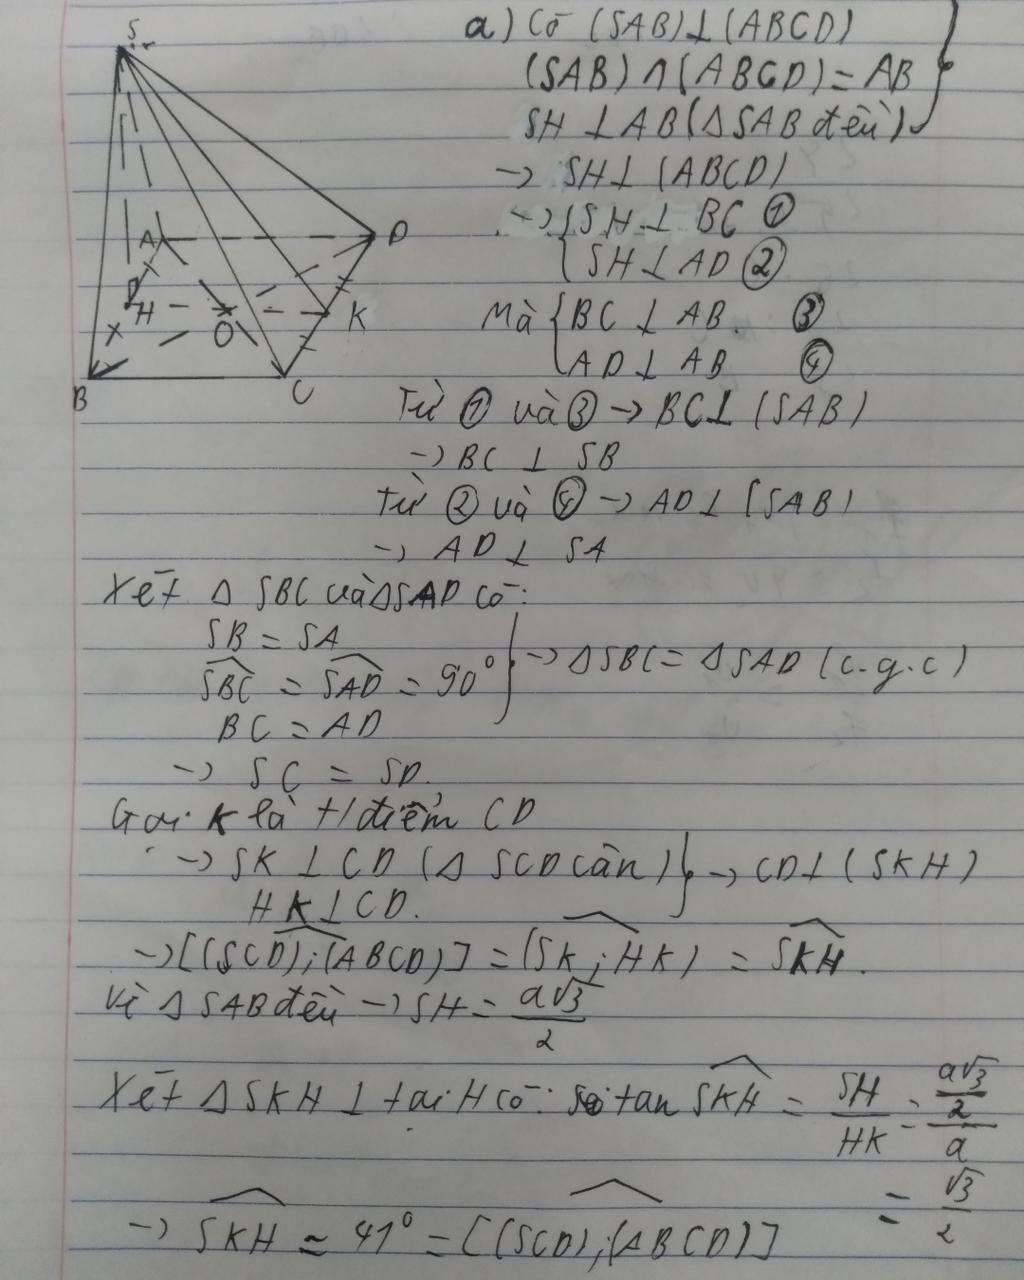 S
A
D
H
O
K
B
C
a) Có (SAB)⊥(ABCD)
(SAB)∩(ABCD)=AB
SH⊥AB(ΔSAB đều)
→ SH⊥(ABCD)
→ { SH⊥BC ①
SH⊥AD ②
Mà { BC⊥AB. ③
AD⊥AB ④
Từ ① và ③ → BC⊥(SAB)
→ BC⊥SB
Từ ② và ④ → AD⊥(SAB)
→ AD⊥SA
Xét ΔSBC và ΔSAD có:
SB = SA
\widehat{SBC} = \widehat{SAD} = 90° } → ΔSBC = ΔSAD (c.g.c)
BC = AD
→ SC = SD.
Gọi K là t/điểm CD
→ SK⊥CD (ΔSCD cân) } → CD⊥(SKH)
HK⊥CD.
→ [(SCD);(ABCD)] = (SK;HK) = \widehat{SKH}.
Vì ΔSAB đều → SH = \frac{a√3}{2}
Xét ΔSKH ⊥ tại H có: tan \widehat{SKH} = \frac{SH}{HK} = \frac{\frac{a√3}{2}}{a}
= \frac{√3}{2}
→ \widehat{SKH} ≈ 41° = [(SCD);(ABCD)]